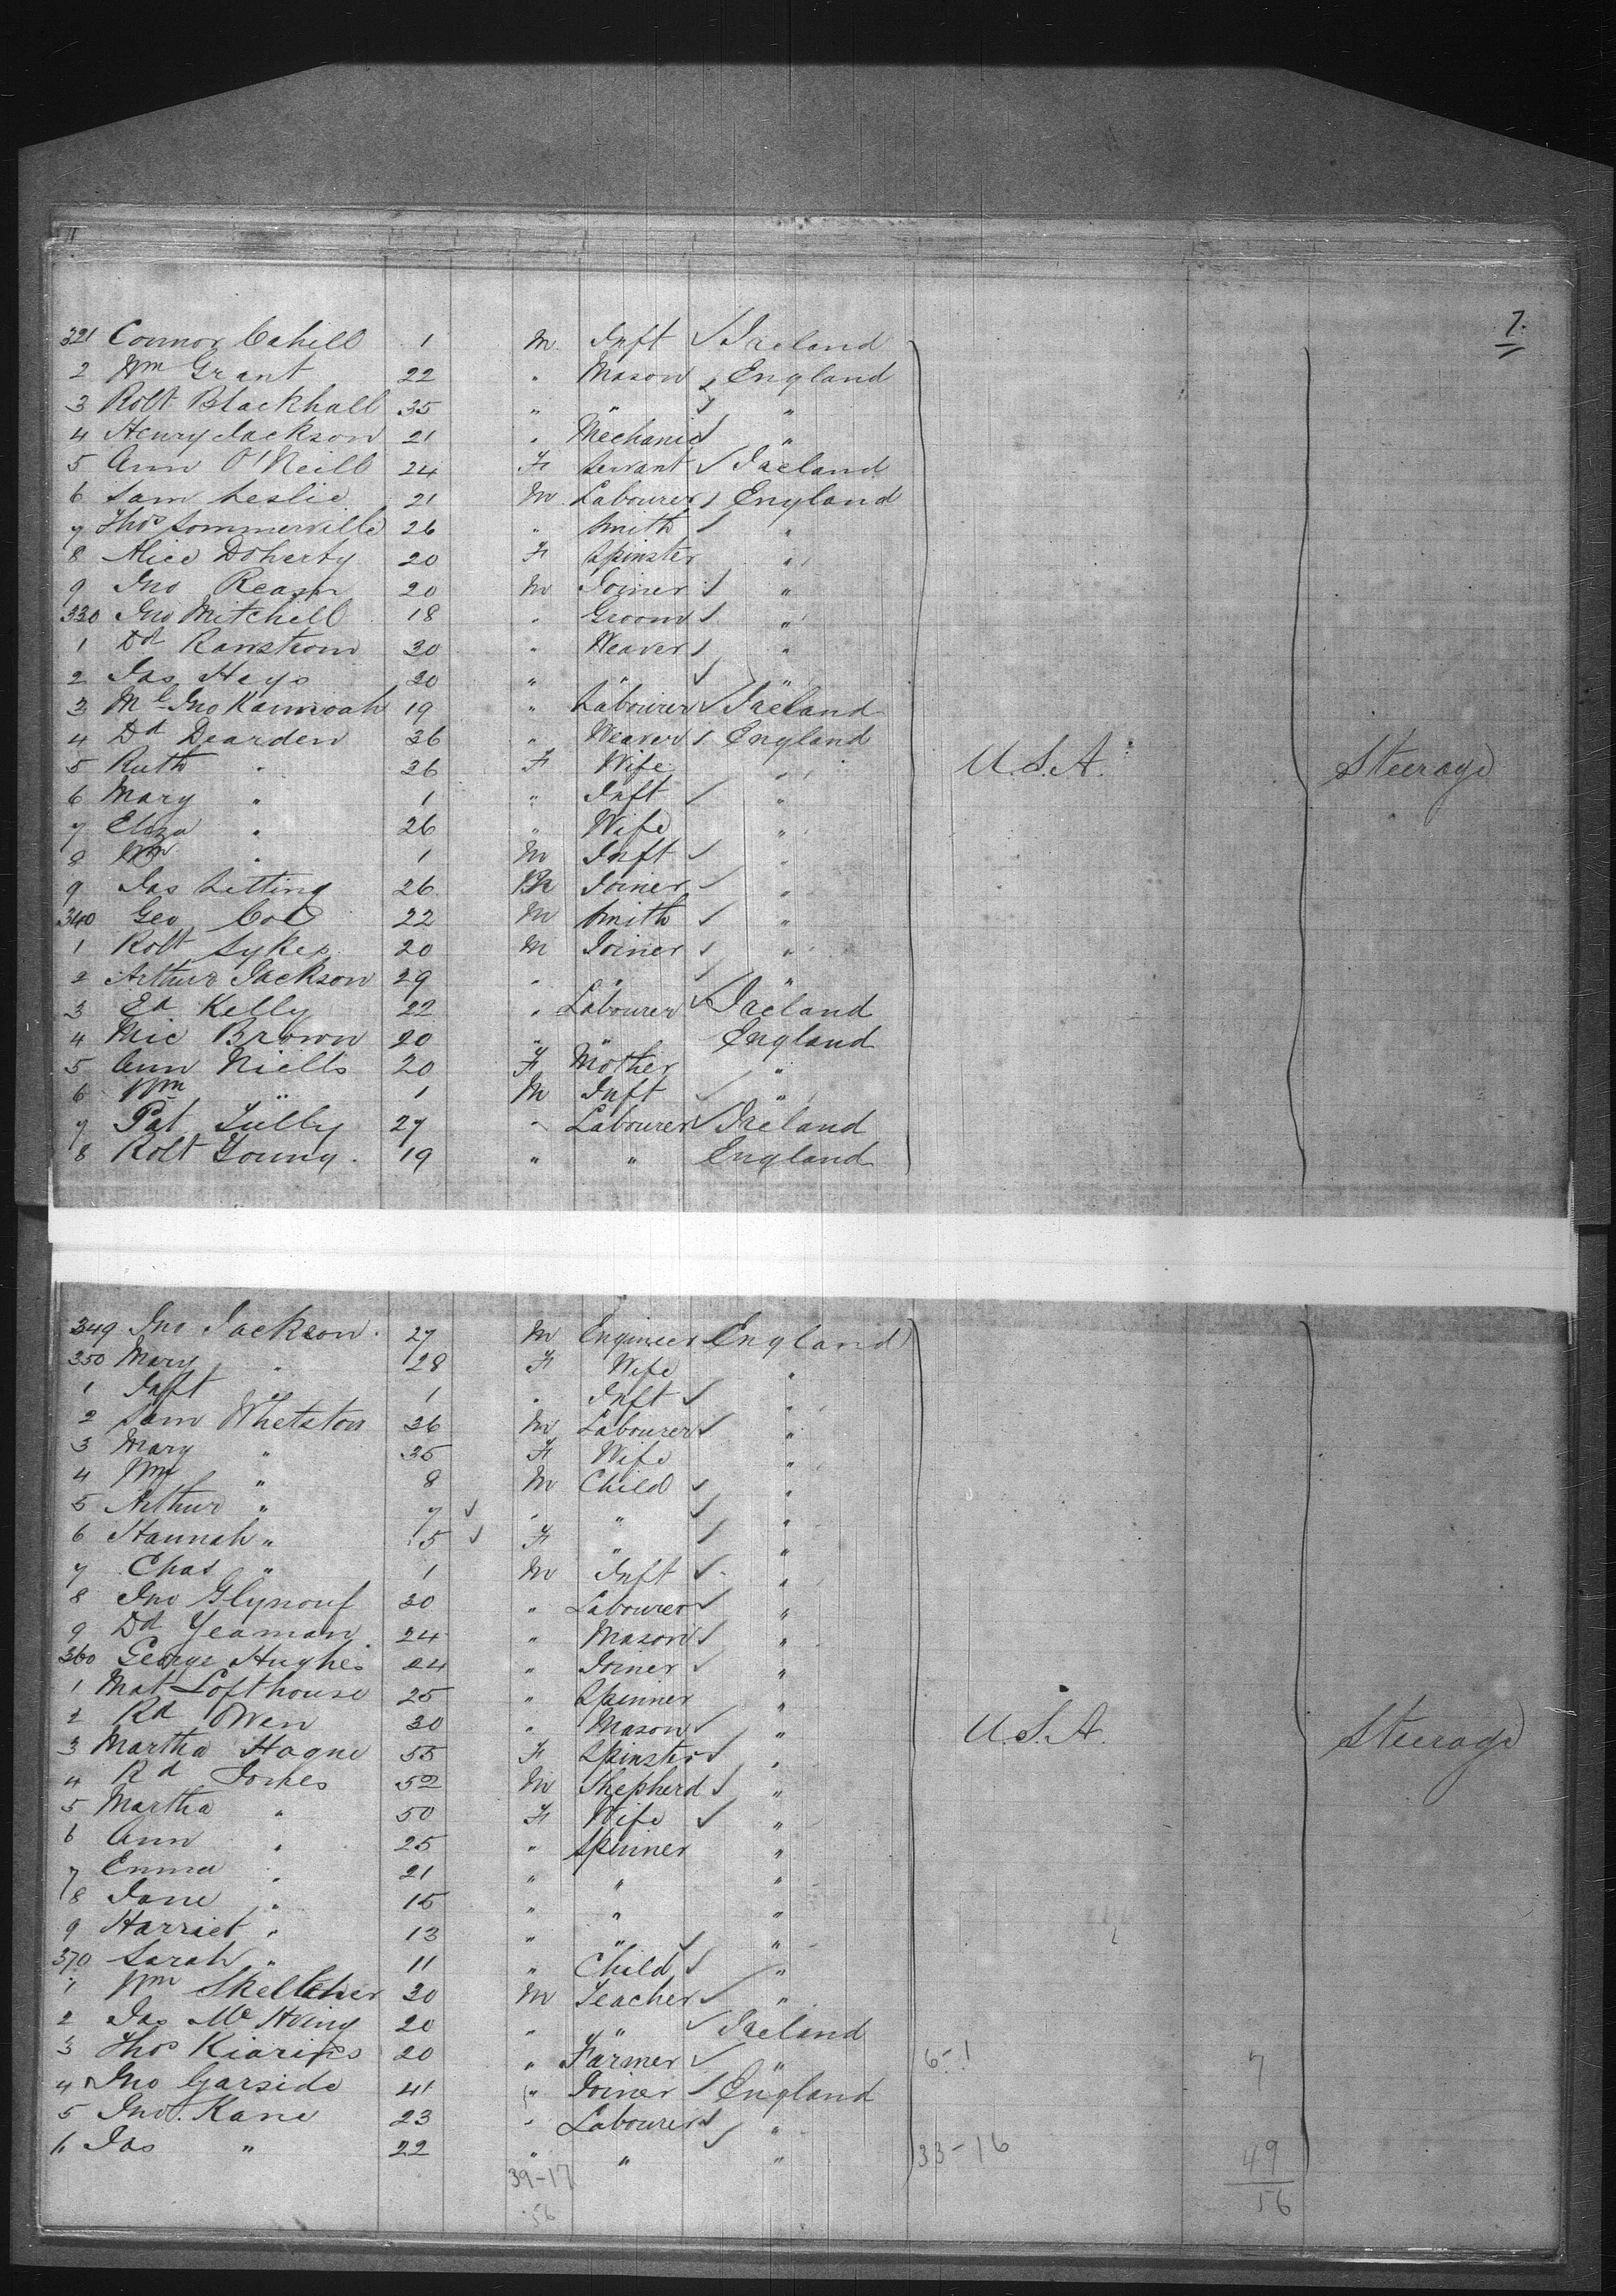 7.
321 Connor Cahill 1 M Inft ✓ Ireland
2 Wm Grant 22 " Mason ✓ England
3 Robt Blackhall 35 " " ✓ "
4 Henry Jackson 21 " Mechanic ✓ "
5 Ann O'Neill 24 F Servant ✓ Ireland
6 Sam Leslie 21 M Labourer ✓ England
7 Thos Sommerville 26 " Smith ✓ "
8 Alice Doherty 20 F Spinster "
9 Jno Reason 20 M Joiner ✓ "
330 Jno Mitchell 18 " Groom ✓ "
1 Dd Rawstrom 30 " Weaver ✓ "
2 Jas Heys 20 " " ✓ "
3 Jno 19 " Labourer ✓ Ireland
4 Dd Dearden 36 " Weaver ✓ England
5 Ruth " 36 F Wife " U.S.A. Steerage
6 Mary " 1 " Inft ✓ "
7 Eliza " 26 " Wife "
8 Wm " 1 M Inft ✓ "
9 Jas Litting 26 M Joiner ✓ "
340 Geo Cox 22 M Smith ✓ "
1 Robt Sykes 20 M Joiner ✓ "
2 Arthur Jackson 29 " " ✓ "
3 Ed Kelly 22 " Labourer ✓ Ireland
4 Mic Brown 20 " " England
5 Ann Niells 20 F Mother "
6 Wm " 1 M Inft ✓ "
7 Pat Tully 27 " Labourer ✓ Ireland
8 Robt Young 19 " " England
349 Jno Jackson 27 M Engineer England
350 Mary " 28 F Wife "
1 Inft 1 " Inft ✓ "
2 Sam Whetston 36 M Labourer ✓ "
3 Mary " 35 F Wife "
4 Wm " 8 M Child ✓ "
5 Arthur " 7 ✓ " " ✓ "
6 Hannah " 5 ✓ F " ✓ "
7 Chas " 1 M Inft ✓ "
8 Jno 30 " Labourer ✓ "
9 Dd Yeaman 24 " Mason ✓ "
360 George Hughes 24 " Joiner ✓ "
1 Mat Lofthouse 25 " Spinner "
2 Rd Owen 30 " Mason ✓ " U.S.A. Steerage
3 Martha Hogne 55 F Spinster ✓ "
4 Rd Jones 52 M Shepherd ✓ "
5 Martha " 50 F Wife ✓ "
6 Ann " 25 " Spinner "
7 Emma " 21 " " "
8 Jane " 15 " " "
9 Harriet " 13 " " ✓ "
370 Sarah " 11 " Child ✓ "
1 Wm Skelleher 30 M Teacher ✓ "
2 Jas 20 " " ✓ Ireland
3 Thos 20 " Farmer ✓ " 6-1 7
4 Jno Garside 41 " Joiner ✓ England
5 Jno. Kane 23 " Labourer ✓ "
6 Jas " 22 " " ✓ " 33-16 49
39-17 56
56